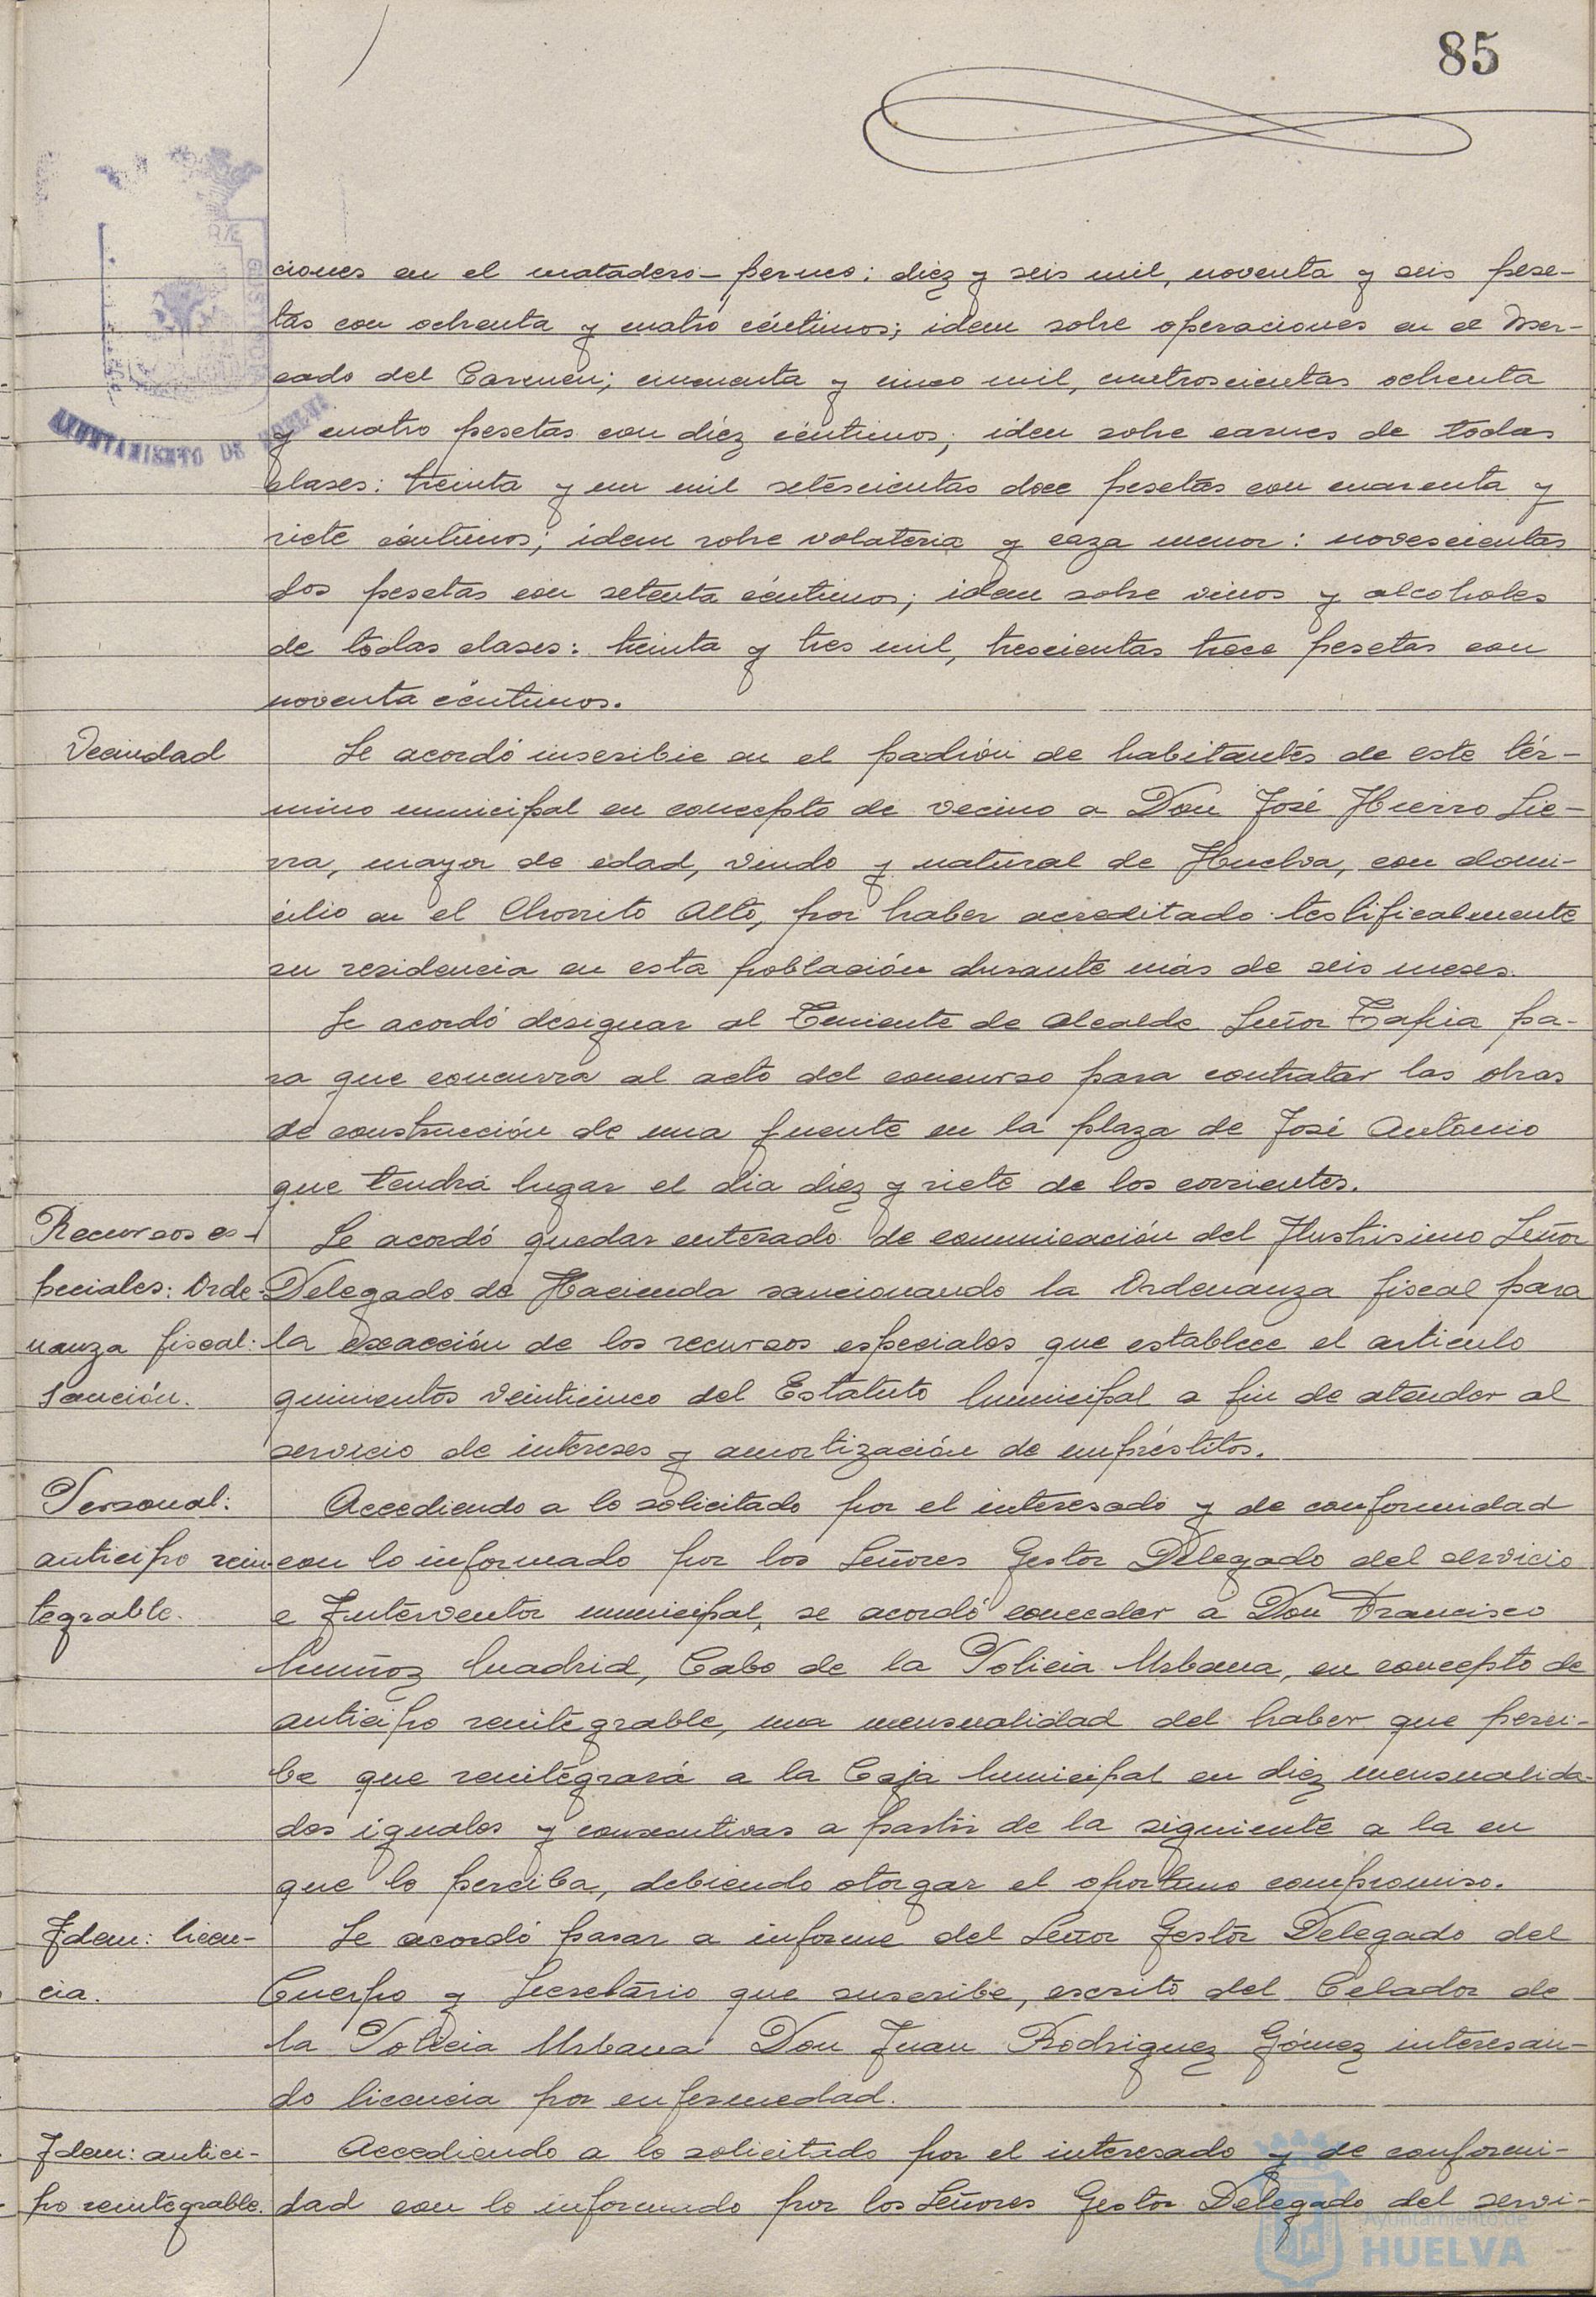 85
ciones en el matadero-permco: diez y seis mil, noventa y seis pese-
tas con ochenta y cuatro céntimos; idem sobre operaciones en el Mer-
cado del Carmen; cincuenta y cinco mil, cuatroscientas ochenta
y cuatro pesetas con diez céntimos; idem sobre carnes de todas
clases: treinta y un mil setescientas doce pesetas con cuarenta y
siete céntimos; idem sobre volateria y caza menor: novescientas
dos pesetas con setenta céntimos; idem sobre vinos y alcoholes
de todas clases: treinta y tres mil, trescientas trece pesetas con
noventa céntimos.
AYUNTAMIENTO DE HUELVA
Vecindad
Se acordó inscribir en el padrón de habitantes de este tér-
mino municipal en concepto de vecino a Don José Hierro Sie-
rra, mayor de edad, viudo y natural de Huelva, con domi-
cilio en el Chorrito Alto, por haber acreditado testificalmente
su residencia en esta población durante más de seis meses.
Se acordó designar al Teniente de Alcalde Señor Tapia pa-
ra que concurra al acto del concurso para contratar las obras
de construcción de una fuente en la plaza de José Antonio
que tendrá lugar el dia diez y siete de los corrientes.
Recursos es-
peciales: Orde-
nanza fiscal:
sanción.
Se acordó quedar enterado de comunicación del Ilustrisimo Señor
Delegado de Hacienda sancionando la Ordenanza fiscal para
la exacción de los recursos especiales que establece el articulo
quinientos veinticinco del Estatuto Municipal a fin de atender al
servicio de intereses y amortización de empréstitos.
Personal:
anticipo rein-
tegrable.
Accediendo a lo solicitado por el interesado y de conformidad
con lo informado por los Señores Gestor Delegado del servicio
e Interventor municipal, se acordó conceder a Don Francisco
Muñoz Madrid, Cabo de la Policia Urbana, en concepto de
anticipo reintegrable, una mensualidad del haber que perci-
be que reintegrará a la Caja Municipal en diez mensualida-
des iguales y consecutivas a partir de la siguiente a la en
que lo perciba, debiendo otorgar el oportuno compromiso.
Idem: licen-
cia.
Se acordó pasar a informe del Señor Gestor Delegado del
Cuerpo y Secretario que suscribe, escrito del Celador de
la Policia Urbana Don Juan Rodriguez Gómez interesan-
do licencia por enfermedad.
Idem: antici-
po reintegrable.
Accediendo a lo solicitado por el interesado y de conformi-
dad con lo informado por los Señores Gestor Delegado del servi-
Ayuntamiento de
HUELVA